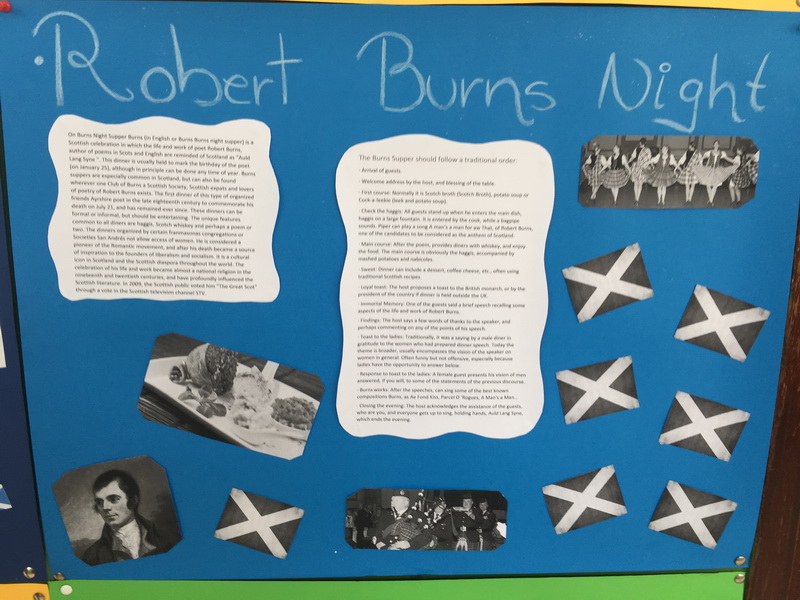 Robert Burns Night
On Burns Night Supper Burns (in English or Burns Burns night supper) is a
Scottish celebration in which the life and work of poet Robert Burns,
author of poems in Scots and English are reminded of Scotland as "Auld
Lang Syne ". This dinner is usually held to mark the birthday of the poet
(on January 25), although in principle can be done any time of year. Burns
suppers are especially common in Scotland, but can also be found
wherever one Club of Burns a Scottish Society, Scottish expats and lovers
of poetry of Robert Burns exists. The first dinner of this type of organized
friends Ayrshire poet in the late eighteenth century to commemorate his
death on July 21, and has remained ever since. These dinners can be
formal or informal, but should be entertaining. The unique features
common to all diners are haggis, Scotch whiskey and perhaps a poem or
two. The dinners organized by certain franmasonas congregations or
Societies San Andrés not allow access of women. He is considered a
pioneer of the Romantic movement, and after his death became a source
of inspiration to the founders of liberalism and socialism. It is a cultural
icon in Scotland and the Scottish diaspora throughout the world. The
celebration of his life and work became almost a national religion in the
nineteenth and twentieth centuries, and have profoundly influenced the
Scottish literature. In 2009, the Scottish public voted him "The Great Scot"
through a vote in the Scottish television channel STV.
The Burns Supper should follow a traditional order:
· Arrival of guests.
· Welcome address by the host, and blessing of the table.
· First course: Normally it is Scotch broth (Scotch Broth), potato soup or
Cock-a-leekie (leek and potato soup)
· Check the haggis: All guests stand up when he enters the main dish,
haggis on a large fountain. It is entered by the cook, while a bagpipe
sounds. Piper can play a song A man's a man for aw That, of Robert Burns,
one of the candidates to be considered as the anthem of Scotland
· Main course: After the poem, provides diners with whiskey, and enjoy
the food. The main course is obviously the haggis, accompanied by
mashed potatoes and nabicoles.
· Sweet: Dinner can include a dessert, coffee cheese, etc., often using
traditional Scottish recipes.
· Loyal toast: The host proposes a toast to the British monarch, or by the
president of the country if dinner is held outside the UK.
· Immortal Memory: One of the guests said a brief speech recalling some
aspects of the life and work of Robert Burns.
· Findings: The host says a few words of thanks to the speaker, and
perhaps commenting on any of the points of his speech.
· Toast to the ladies: Traditionally, it was a saying by a male diner in
gratitude to the women who had prepared dinner speech. Today the
theme is broader, usually encompasses the vision of the speaker on
women in general. Often funny but not offensive, especially because
ladies have the opportunity to answer below.
· Response to toast to the ladies: A female guest presents his vision of men
answered, if you will, to some of the statements of the previous discourse.
· Burns works: After the speeches, can sing some of the best known
compositions Burns, as Ae Fond Kiss, Parcel O 'Rogues, A Man's a Man..
· Closing the evening: The host acknowledges the assistance of the guests,
who are you, and everyone gets up to sing, holding hands, Auld Lang Syne,
which ends the evening.